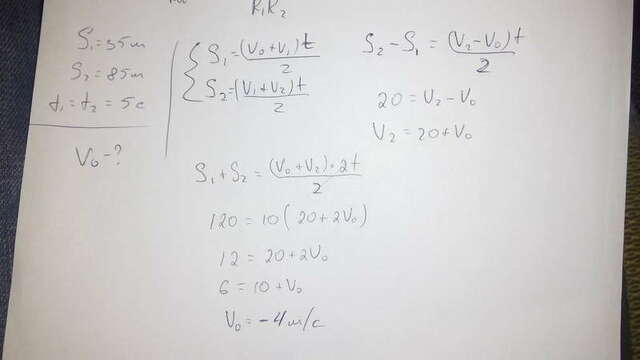 R₁R₂
S₁=35m
S₂=85m
t₁=t₂=5c
V₀-?
S₁=(V₀+V₁)t/2
S₂=(V₁+V₂)t/2
S₂-S₁=(V₂-V₀)t/2
20=V₂-V₀
V₂=20+V₀
S₁+S₂=(V₀+V₂)·2t/2
120=10(20+2V₀)
12=20+2V₀
6=10+V₀
V₀=-4m/c